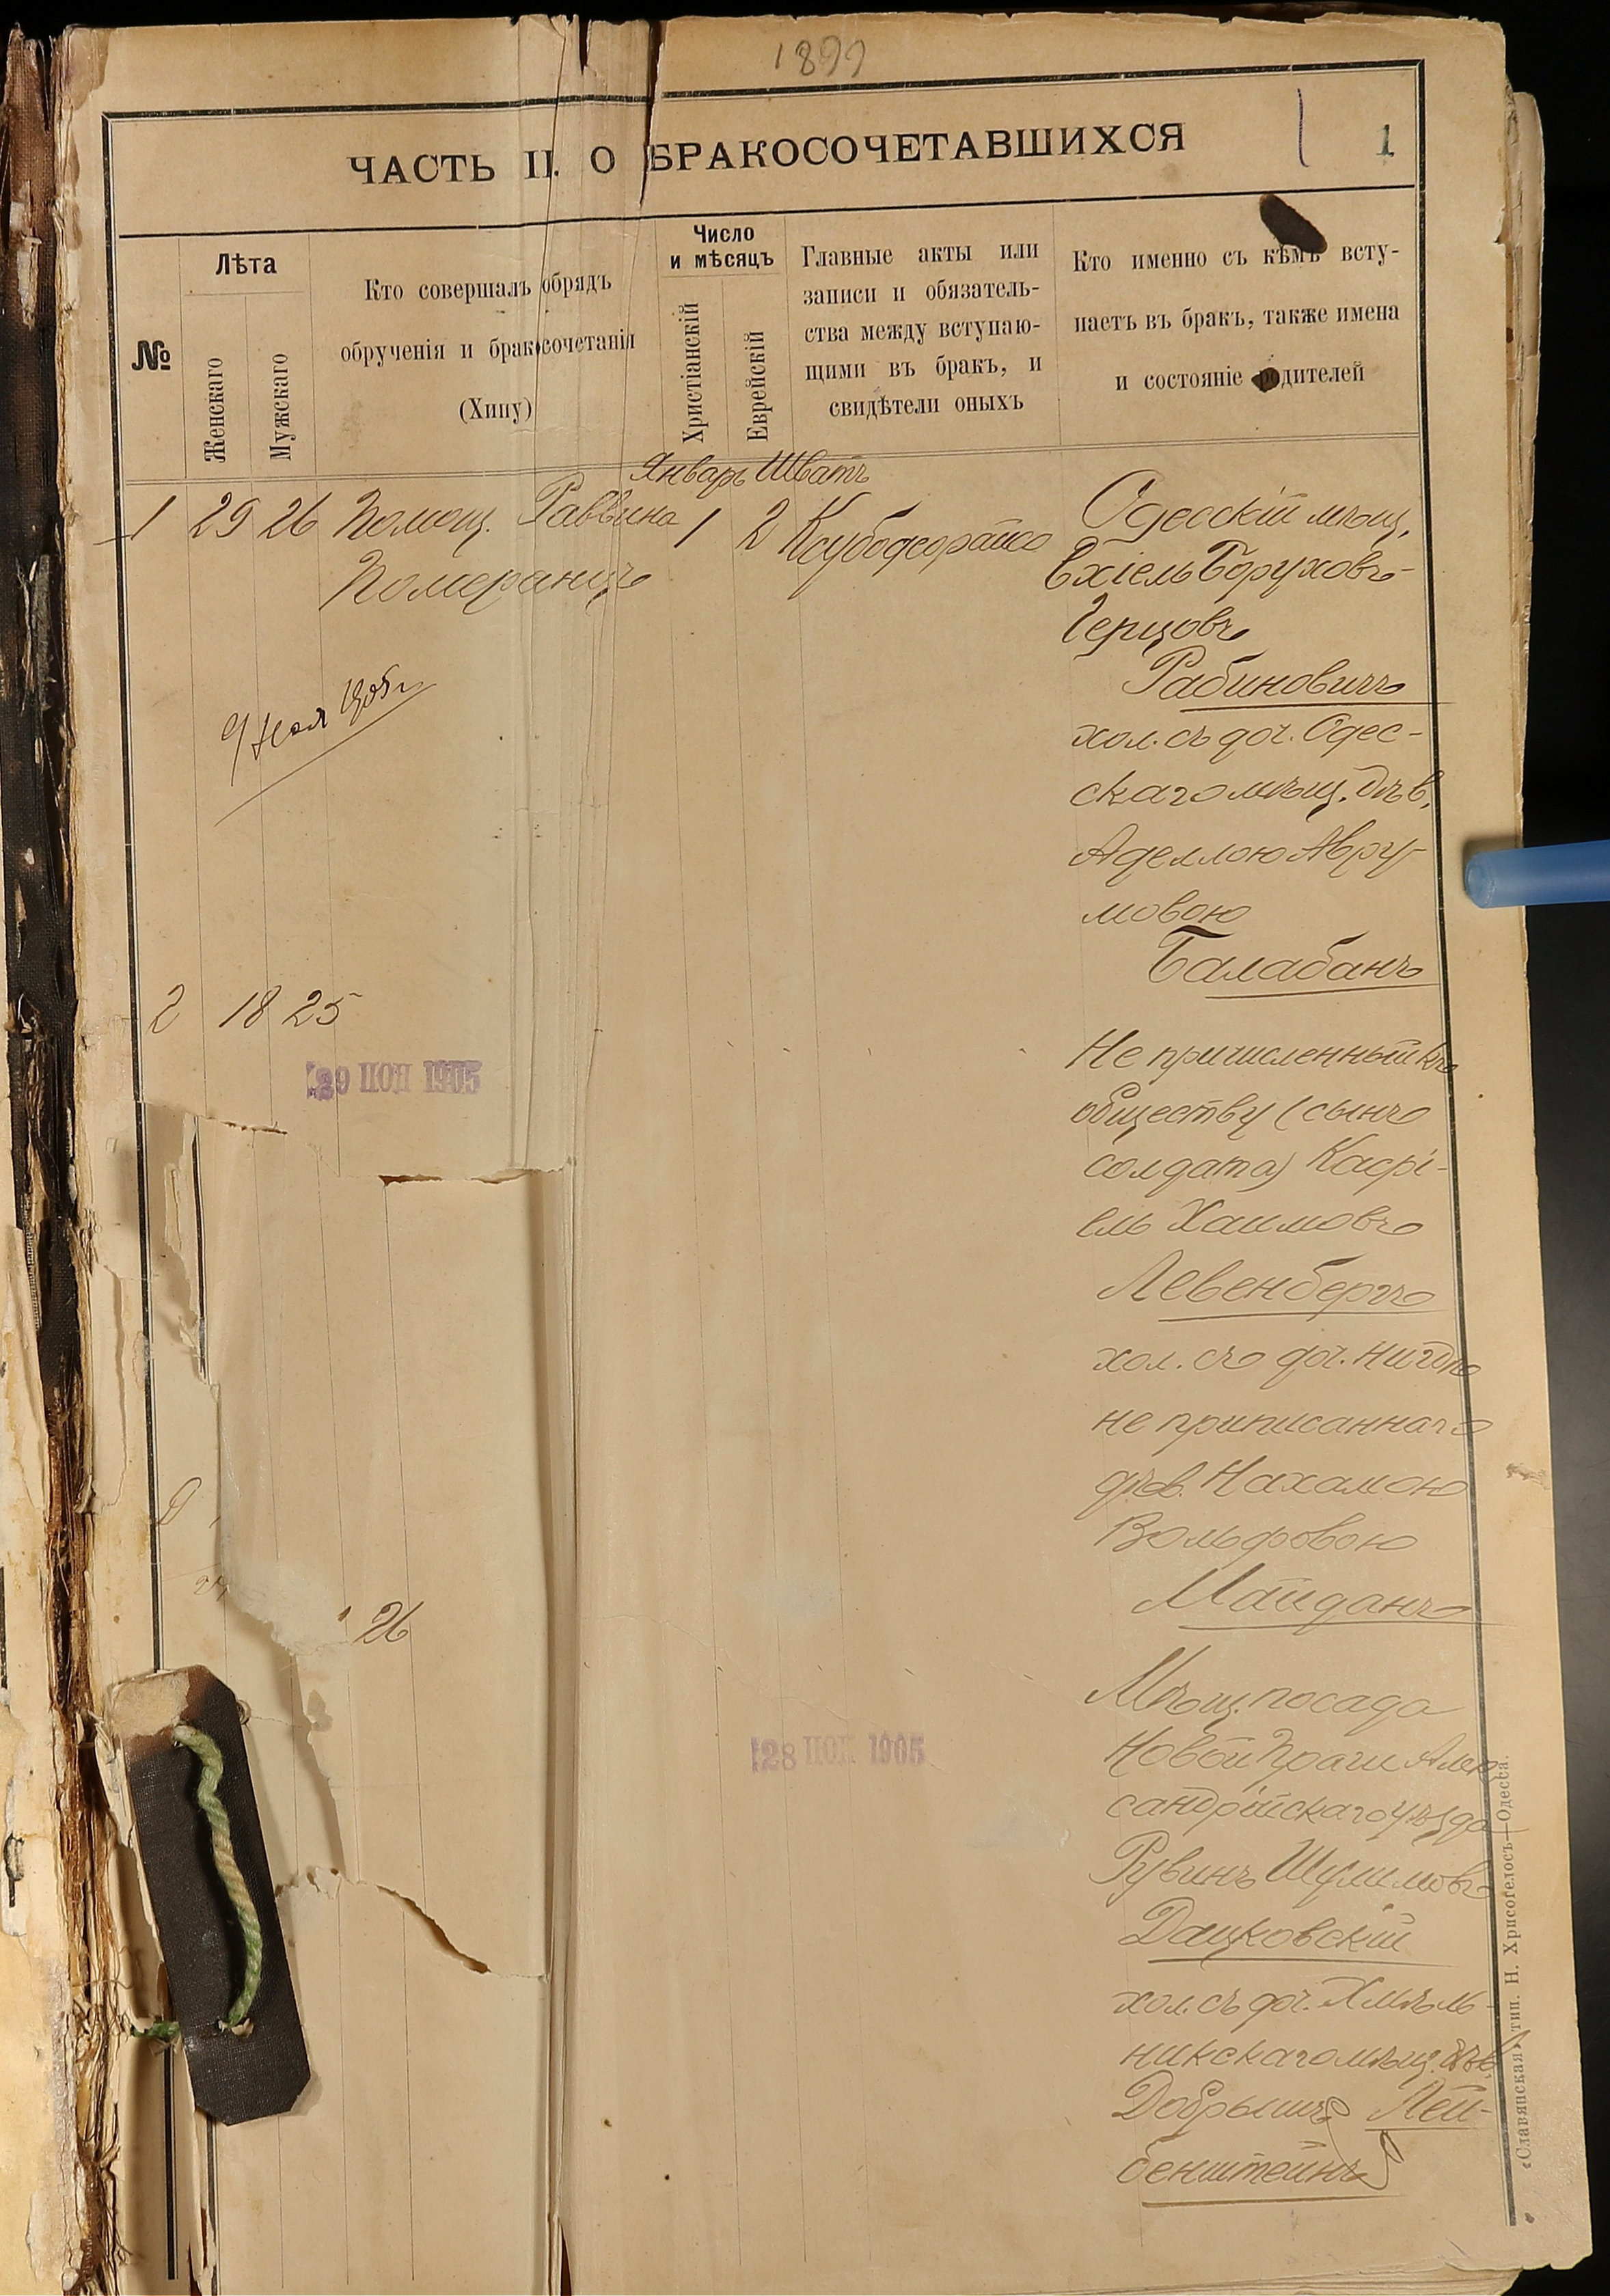 1899
ЧАСТЬ II. О БРАКОСОЧЕТАВШИХСЯ
1
№
Лѣта
Женскаго
Мужскаго
Кто совершалъ обрядъ
обрученія и бракосочетанія
(Хипу)
Число
и мѣсяцъ
Христіанскій
Еврейскій
Главные акты или
записи и обязатель-
ства между вступаю-
щими въ бракъ, и
свидѣтели оныхъ
Кто именно съ кѣмъ всту-
паетъ въ бракъ, также имена
и состояніе родителей
Январь Шватъ
1 29 26 Помощ. Раввина 1 2
Померанцъ
Одесскій мѣщ.
Ехіель Боруховъ-
Герцовъ
Рабиновичъ
хол. съ доч. Одес-
скаго мѣщ. дѣв.
Аделлою Авру-
мовою
Балабанъ
1905 г.
2 18 25
29 ІЮН 1905
Не причисленный къ
обществу (сынъ
солдата) Касрі-
ель Хаимовъ
Левенбергъ
хол. съ доч. нигдѣ
не приписаннаго
дѣв. Нахамою
Вольфовою
Майданъ
26
28 1905
Мѣщ. посада
Новой Праги Алек
сандрійскаго уѣзда
Рувинъ Шулимовъ
Дацковскій
хол. съ доч. Хмѣль-
никскаго мѣщ. дѣв.
Добрышъ Лей-
бенштейнъ
«Славянская» тип. Н. Хрисогелосъ—Одесса.